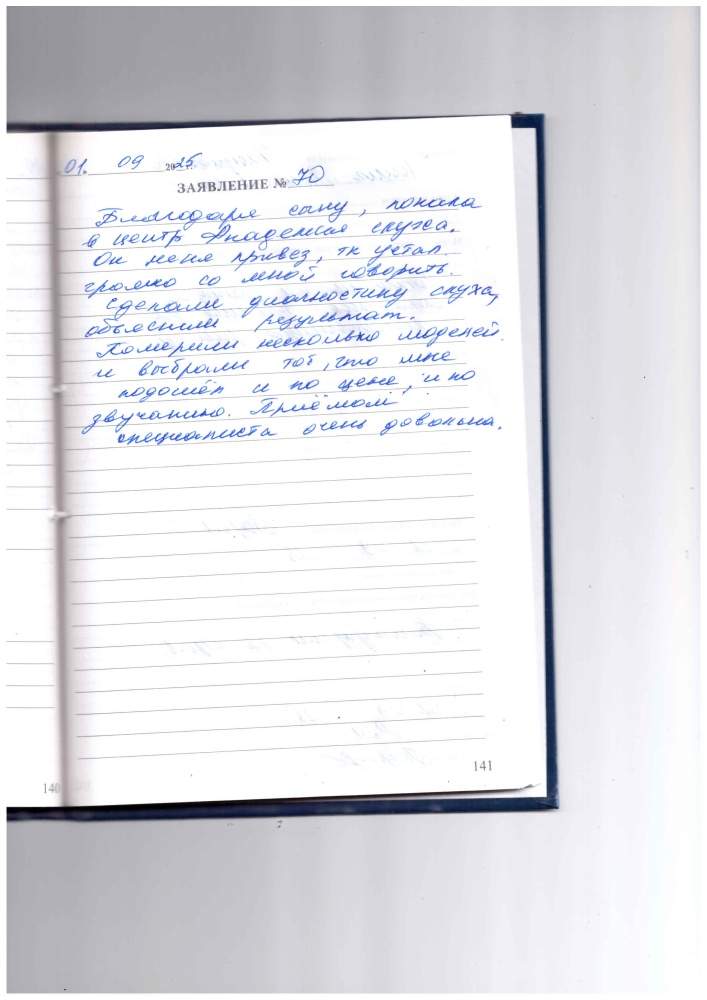 01. 09 2025
ЗАЯВЛЕНИЕ № 70
Благодаря сыну, попала
в центр Академия слуха.
Он меня привез, тк устал
громко со мной говорить.
Сделали диагностику слуха,
объяснили результат.
Померили несколько моделей
и выбрали тот, что мне
подошёл и по цене, и по
звучанию. Приёмом
специалиста очень довольна.
140
141